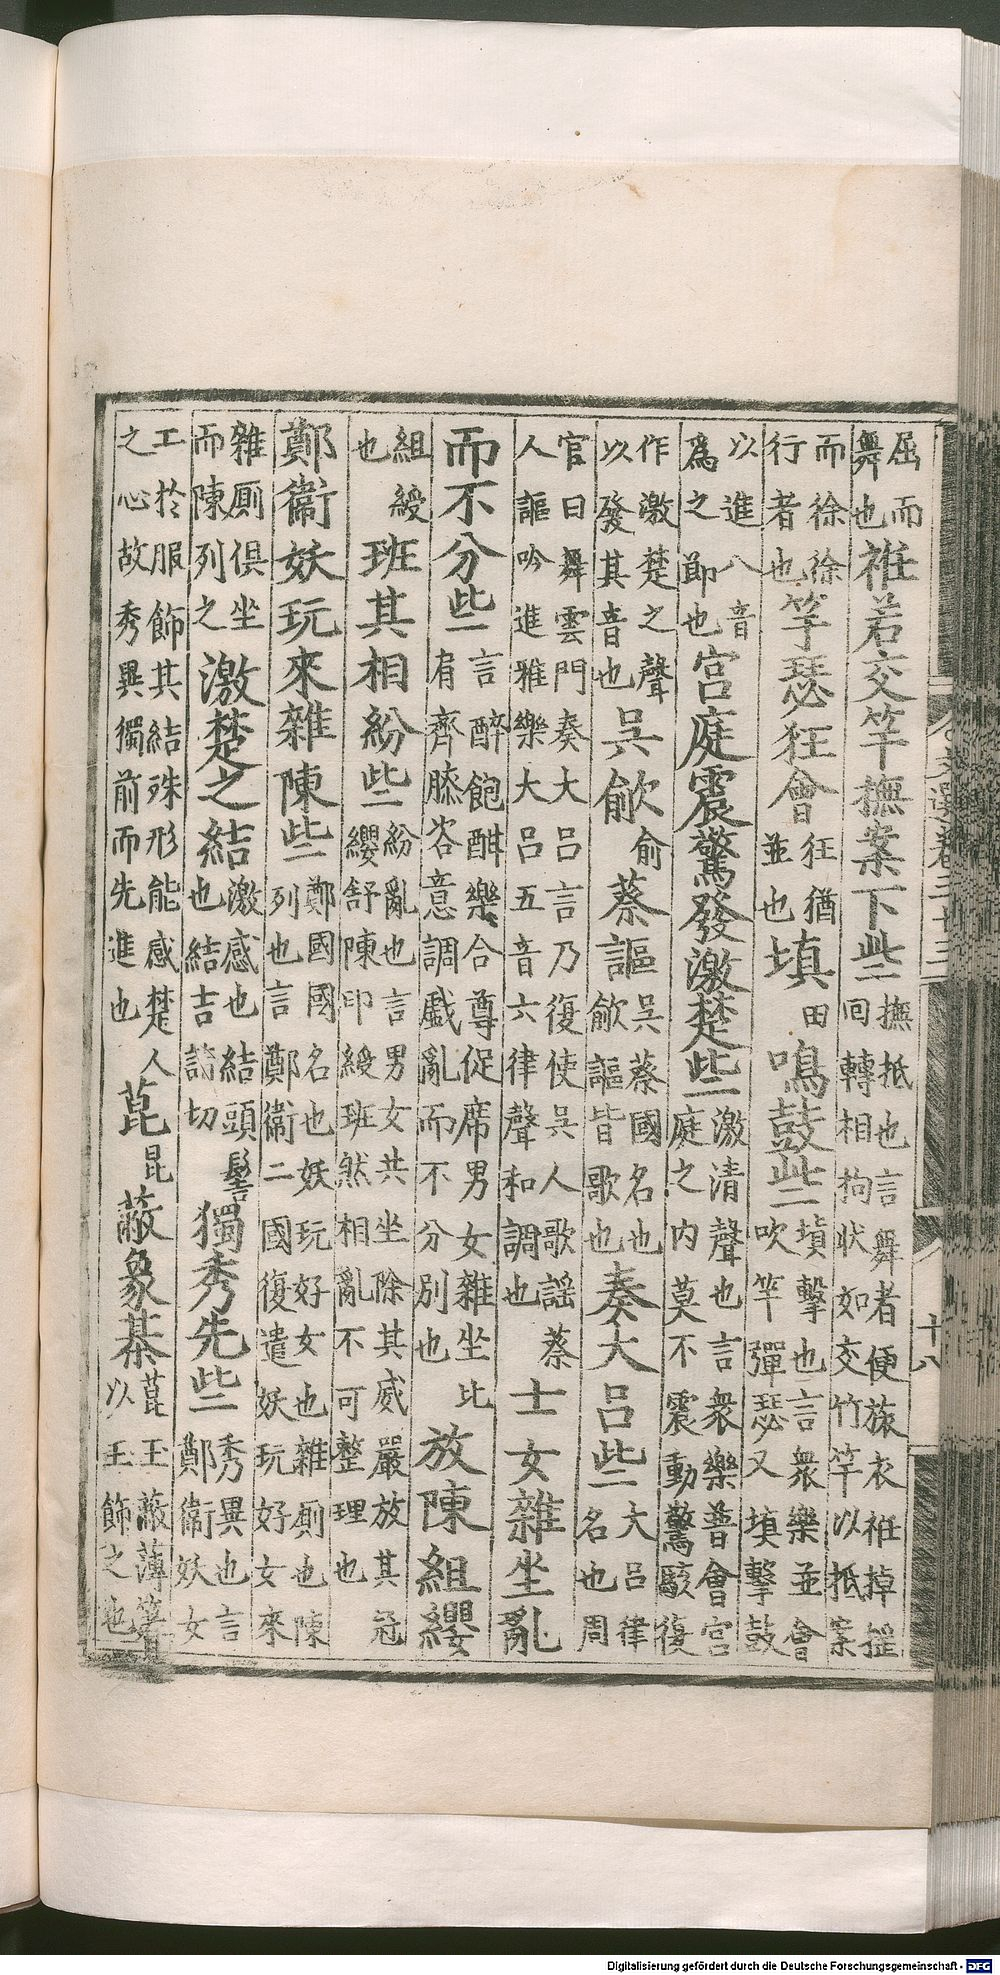 屈而舞也袵若交竿撫案下些撫抵也言舞者便旋衣袵掉摇回轉相拘狀如交竹竿以抵案
而徐徐行者也竽瑟狂會狂猶並也填田鳴鼓些填擊也言衆樂並會吹竽彈瑟又填擊鼓
以進八音爲之節也宮庭震驚發激楚些激清聲也言衆樂普會宮庭之内莫不震動驚駭復
作激楚之聲以發其音也吳歈俞蔡謳吳蔡國名也歈謳皆歌也奏大呂些大呂律名也周
官曰舞雲門奏大呂言乃復使吳人歌謡蔡人謳吟進雅樂大呂五音六律聲和調也士女雜坐亂
而不分些言醉飽酣樂合尊促席男女雜坐比肩齊膝恣意調戲亂而不分別也放陳組纓
組綬也班其相紛些紛亂也言男女共坐除其威嚴放其冠纓舒陳印綬班然相亂不可整理也
鄭衞妖玩來雜陳些鄭國國名也妖玩好女也雜厠也陳列也言鄭衞二國復遣妖玩好女來
雜厠俱坐而陳列之激楚之結激感也結頭髻也結吉詣切獨秀先些秀異也言鄭衞妖女
工於服飾其結殊形能感楚人之心故秀異獨前而先進也菎昆蔽象棊菎玉蔽薄箸以玉飾之也
十八
Digitalisierung gefördert durch die Deutsche Forschungsgemeinschaft - DFG